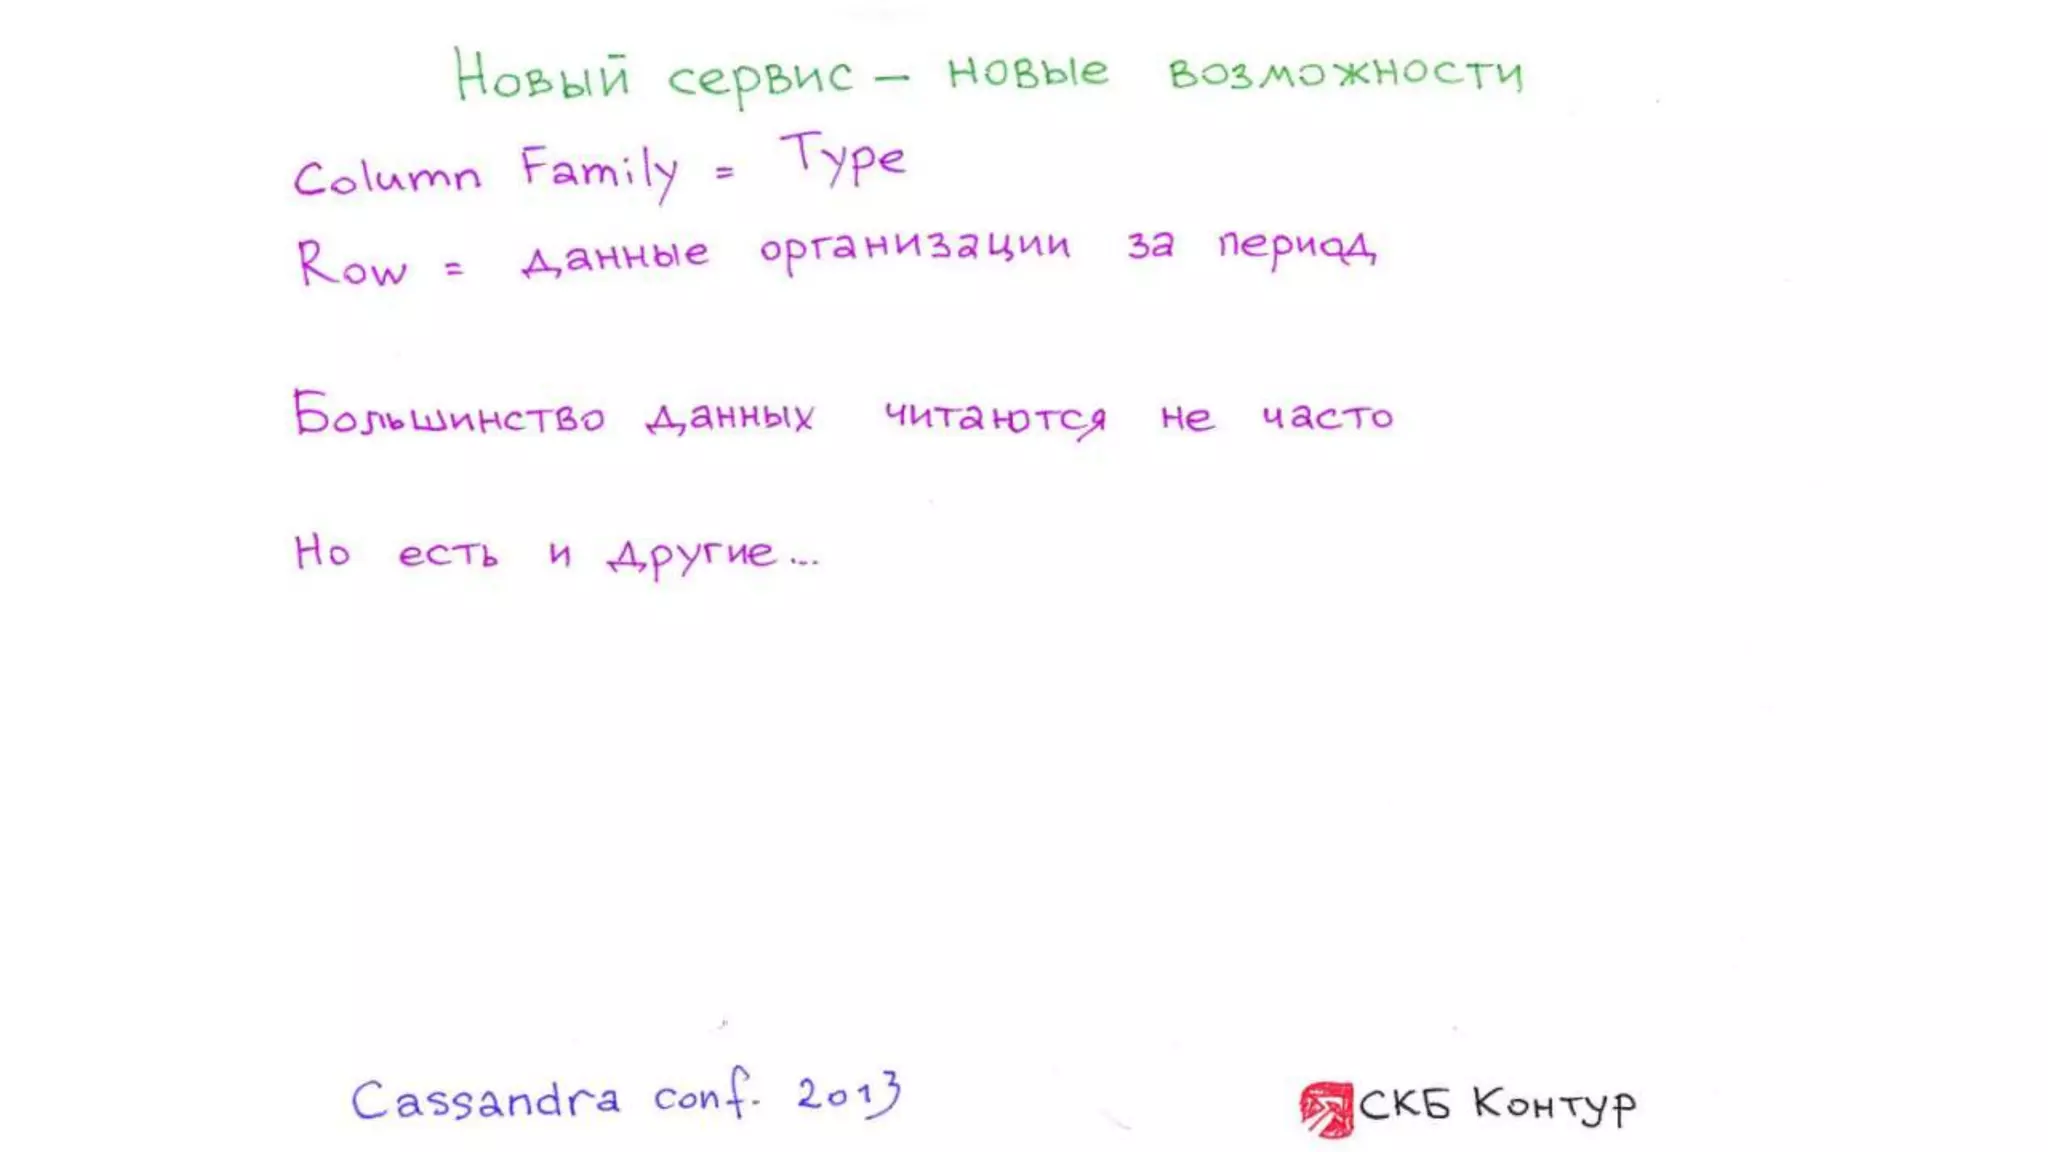 Новый сервис – новые возможности
Column Family = Type
Row = данные организации за период
Большинство данных читаются не часто
Но есть и другие...
Cassandra conf. 2013
СКБ Контур